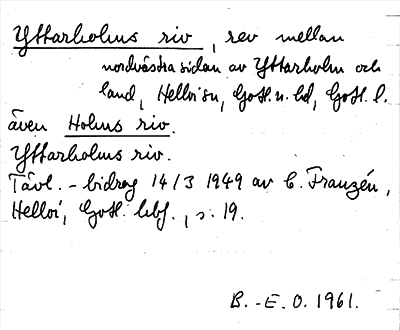 Yttarholms riv, rev mellan
nordvästra sidan av Yttarholm och
land, Hellvi sn, Gotl. n. hd, Gotl. l.
även Holms riv.
Yttarholms riv.
Tävl.-bidrag 14/3 1949 av C. Franzén,
Hellvi, Gotl. hbf., s. 19.
B.-E. O. 1961.